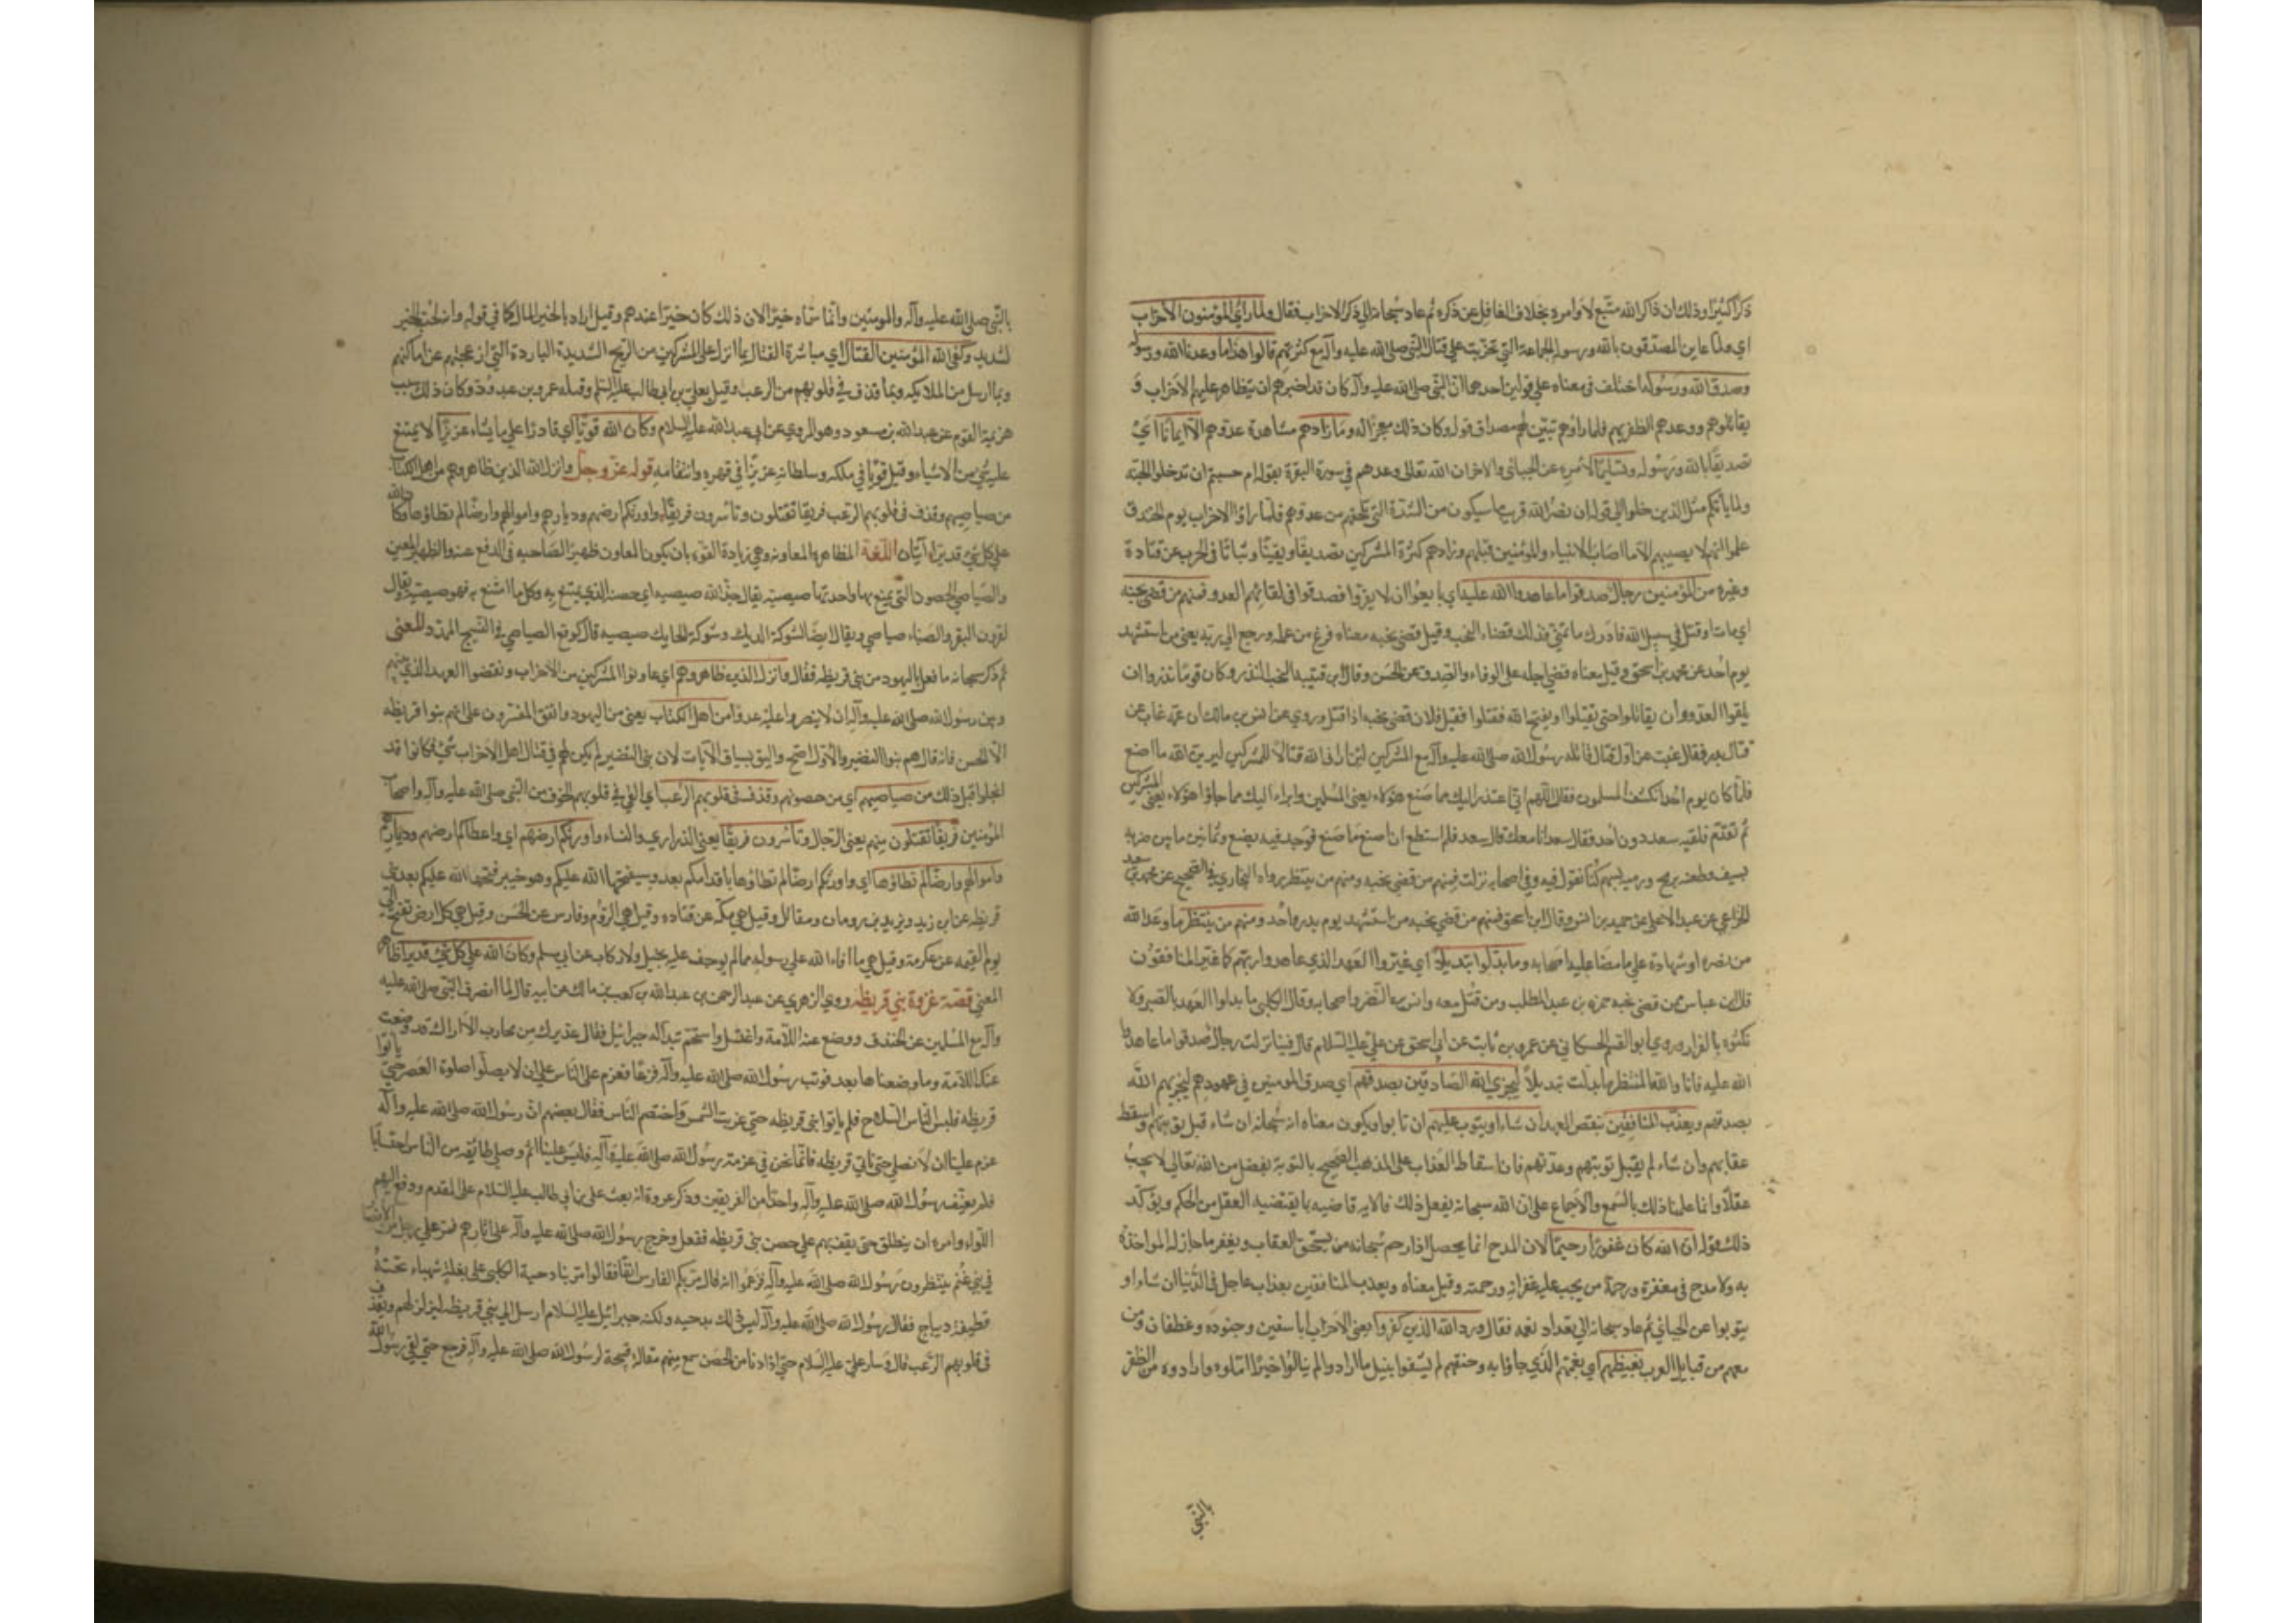 ذكرا كثيرا وذلك ان ذاكر الله متبع لاوامره بخلاف الغافل عن ذكره ثم عاد سبحانه الى ذكر الاحزاب فقال ولما رأى المؤمنون الاحزاب
اي ولما عاين المصدقون بالله ورسوله الجماعة التي تحزبت على قتال النبي صلى الله عليه وآله مع كثرتهم قالوا هذا ما وعدنا الله ورسوله
وصدق الله ورسوله اختلف في معناه على قولين احدهما ان النبي صلى الله عليه وآله كان قد اخبرهم ان يتظاهر عليهم الاحزاب و
يقاتلوهم ووعدهم الظفر بهم فلما راوهم تبين لهم مصداق قوله وكان ذلك معجزا له وما زادهم مشاهدة عدوهم الا ايمانا اي
تصديقا بالله ورسوله وتسليما لامره عن الجبائي والاخر ان الله تعالى وعدهم في سورة البقرة بقوله ام حسبتم ان تدخلوا الجنة
ولما ياتكم مثل الذين خلوا الى قوله ان نصر الله قريب ما سيكون من الشدة التي تلحقهم من عدوهم فلما راوا الاحزاب يوم الخندق
علموا انهم لا يصيبهم الا ما اصاب الانبياء والمؤمنين قبلهم وزادهم كثرة المشركين تصديقا ويقينا وثباتا في الحرب عن قتادة
وغيره من المؤمنين رجال صدقوا ما عاهدوا الله عليه اي بايعوا ان لا يفروا فصدقوا في لقائهم العدو فمنهم من قضى نحبه
اي مات او قتل في سبيل الله فادرك ما تمنى فذلك قضاء النحب وقيل قضى نحبه معناه فرغ من عمله ورجع الى ربه يعني من استشهد
يوم احد عن محمد بن اسحق وقيل معناه قضى اجله على الوفاء والصدق عن الحسن وقال ابن قتيبة النحب النذر وكان قوما نذروا ان
يلقوا العدو وان يقاتلوا حتى يقتلوا او يفتح الله فقتلوا فقيل فلان قضى نحبه اذا قتل وروي عن انس بن مالك ان عمه غاب عن
قتال بدر فقال غبت عن اول قتال قاتله رسول الله صلى الله عليه وآله مع المشركين لئن اراني الله قتالا للمشركين ليرين الله ما اصنع
فلما كان يوم احد انكشف المسلمون فقال اللهم اني اعتذر اليك مما صنع هؤلاء يعني المسلمين وابراء اليك مما جاؤا هؤلاء يعني المشركين
ثم تقدم فلقيه سعد دون احد فقال سعد انا معك قال سعد فلم استطع ان اصنع ما صنع فوجد فيه بضع وثمانين ما بين ضربة
بسيف وطعنة برمح ورمية بسهم كنا نقول فيه وفي اصحابه نزلت فمنهم من قضى نحبه ومنهم من ينتظر رواه البخاري في الصحيح عن محمد بن سعد
الخزاعي عن عبد الاعلى عن حميد بن انس وقال ابن اسحق فمنهم من قضى نحبه من استشهد يوم بدر واحد ومنهم من ينتظر ما وعد الله
من نصره او شهادة على ما مضى عليه اصحابه وما بدلوا تبديلا اي غيروا العهد الذي عاهدوا ربهم كما غير المنافقون
قال ابن عباس من قضى نحبه حمزة بن عبد المطلب ومن قتل معه وانس بن النضر واصحابه وقال الكلبي ما بدلوا العهد بالصبر ولا
نكثوه بالفرار وروى ابو القسم الحسكاني عن عمرو بن ثابت عن ابي اسحق عن علي عليه السلام قال فينا نزلت رجال صدقوا ما عاهدوا
الله عليه فانا والله المنتظر ما بدلت تبديلا ليجزي الله الصادقين بصدقهم اي صدق المومنين في عهودهم ليجزيهم الله
بصدقهم ويعذب المنافقين بنقض العهد ان شاء او يتوب عليهم ان تابوا ويكون معناه انه سبحانه ان شاء قبل توبتهم واسقط
عقابهم وان شاء لم يقبل توبتهم وعذبهم فان اسقاط العذاب على المذهب الصحيح بالتوبة بفضل من الله تعالى لا يجب
عقلا وانما علمنا ذلك بالسمع والاجماع على ان الله سبحانه يفعل ذلك فالاية قاضية بما يقتضيه العقل من الحكم ويؤكد
ذلك قوله ان الله كان غفورا رحيما لان المدح انما يحصل اذا رحم سبحانه من يستحق العقاب ويغفر ما جاز له المواخذة
به ولا مدح في مغفرة ورحمة من يجب عليه غفرانه ورحمته وقيل معناه ويعذب المنافقين بعذاب عاجل في الدنيا ان شاء او
يتوبوا عن الجبائي ثم عاد سبحانه الى تعداد نعمه فقال ورد الله الذين كفروا يعني الاحزاب ابا سفين وجنوده وغطفان ومن
معهم من قبايل العرب بغيظهم اي بغمهم الذي جاؤا به وحنقهم لم يشفوا بنيل ما ارادوا لم ينالوا خيرا املوه وارادوه من الظفر
بالنبي
بالنبي صلى الله عليه وآله والمومنين وانما سماه خيرا لان ذلك كان خيرا عندهم وقيل اراد بالخير المال كما في قوله وانه لحب الخير
لشديد وكفى الله المؤمنين القتال اي مباشرة القتال بما انزل على المشركين من الريح الشديدة الباردة التي ازعجتهم عن اماكنهم
وبما ارسل من الملائكة وبما قذف في قلوبهم من الرعب وقيل بعلي بن ابي طالب عليه السلم وقتله عمرو بن عبد ود وكان ذلك سبب
هزيمة القوم عن عبد الله بن مسعود وهو المروي عن ابي عبد الله عليه السلام وكان الله قويا اي قادرا على ما يشاء عزيزا لا يمتنع
عليه شيء من الاشياء وقيل قويا في ملكه وسلطانه عزيزا في قهره وانتقامه قوله عز وجل وانزل الله الذين ظاهروهم من اهل الكتاب
من صياصيهم وقذف في قلوبهم الرعب فريقا تقتلون وتأسرون فريقا واورثكم ارضهم وديارهم واموالهم وارضا لم تطاؤها وكان الله
على كل شيء قديرا ايتان اللغة المظاهرة المعاونة وهي زيادة القوة بان يكون المعاون ظهيرا لصاحبه في الدفع عنه والظهير المعين
والصياصي الحصون التي يمتنع بها واحدتها صيصية يقال جذ الله صيصيه اي حصنه الذي يمتنع به وكل ما امتنع به فهو صيصية ويقال
لقرون البقر والظباء صياصي ويقال ايضا لشوكة الديك وشوكة الحايك صيصية قال كوقع الصياصي في النسيج الممدد المعنى
ثم ذكر سبحانه ما فعل باليهود من بني قريظة فقال وانزل الذين ظاهروهم اي عاونوا المشركين من الاحزاب ونقضوا العهد الذي بينهم
وبين رسول الله صلى الله عليه وآله ان لا ينصروا عليه عدوا من اهل الكتاب يعني من اليهود واتفق المفسرون على انهم بنوا قريظة
الا الحسن فانه قال هم بنوا النضير والاول اصح واليق بسياق الآيات لان بني النضير لم يكن لهم في قتال اهل الاحزاب شيء وكانوا قد
انجلوا قبل ذلك من صياصيهم اي من حصونهم وقذف في قلوبهم الرعب اي القى في قلوبهم الخوف من النبي صلى الله عليه وآله واصحابه
المؤمنين فريقا تقتلون منهم يعني الرجال وتأسرون فريقا يعني الذراري والنساء واورثكم ارضهم اي واعطاكم ارضهم وديارهم
واموالهم وارضا لم تطاؤها اي واورثكم ارضا لم تطاؤها باقدامكم بعد وسيفتحها الله عليكم وهو خيبر فتحها الله عليكم بعد بني
قريظة عن ابن زيد ويزيد بن رومان ومقاتل وقيل هي مكة عن قتاده وقيل هي الروم وفارس عن الحسن وقيل هي كل ارض تفتح الى
يوم القيمة عن عكرمة وقيل هي ما افاء الله على رسوله مما لم يوجف عليه بخيل ولا ركاب عن ابي مسلم وكان الله على كل شيء قديرا ظاهر
المعنى قصة غزوة بني قريظة روى الزهري عن عبد الرحمن بن عبد الله بن كعب بن مالك عن ابيه قال لما انصرف النبي صلى الله عليه
وآله مع المسلمين عن الخندق ووضع عنه اللأمة واغتسل واستحم تبدا له جبرائيل فقال عذيرك من محارب الا اراك قد وضعت
عنك اللأمة وما وضعناها بعد فوثب رسول الله صلى الله عليه وآله فزعا فعزم على الناس على ان لا يصلوا صلوة العصر حتى ياتوا
قريظة فلبس الناس السلاح فلم ياتوا بني قريظة حتى غربت الشمس واختصم الناس فقال بعضهم ان رسول الله صلى الله عليه وآله
عزم علينا ان لا نصلي حتى ناتي قريظة فانما نحن في عزمة رسول الله صلى الله عليه وآله فليس علينا اثم وصلى طائفة من الناس احتسابا
فلم يعنف رسول الله صلى الله عليه وآله واحدا من الفريقين وذكر عروة انه بعث علي بن ابي طالب عليه السلام على المقدم ودفع اليهم
اللواء وامره ان ينطلق حتى يقف بهم على حصن بني قريظة ففعل وخرج رسول الله صلى الله عليه وآله على اثارهم فمر على رجل من الانصار
في بني غنم ينتظرون رسول الله صلى الله عليه وآله فزعموا انه قال مر بكم الفارس انفا فقالوا مر بنا دحية الكلبي على بغلة شهباء تحته
قطيفة ديباج فقال رسول الله صلى الله عليه وآله ليس ذلك بدحيه ولكنه جبرائيل عليه السلام ارسل الى بني قريظة ليزلزلهم ويقذف
في قلوبهم الرعب قال وسار علي عليه السلام حتى اذا دنا من الحصن سمع منهم مقالة قبيحة لرسول الله صلى الله عليه وآله فرجع حتى لقي رسول الله